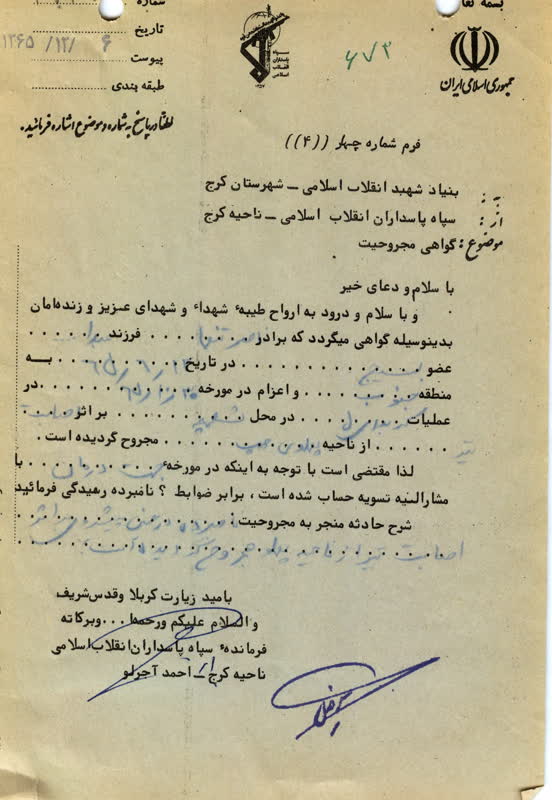 بسمه تعا
شماره
تاریخ ۱۳۶۵/۱۲/۶
پیوست
طبقه بندی
جمهوری اسلامی ایران
سپاه پاسداران انقلاب اسلامی
۶۷۳
لطفا در پاسخ به شماره و موضوع اشاره فرمائید.
فرم شماره چهار ((۴))
به : بنیاد شهید انقلاب اسلامی ــ شهرستان کرج
از : سپاه پاسداران انقلاب اسلامی ــ ناحیه کرج
موضوع : گواهی مجروحیت
با سلام و دعای خیر
و با سلام و درود به ارواح طیبه شهداء و شهدای عزیز و زنده‌امان
بدینوسیله گواهی میگردد که برادر فرزند
عضو بسیج در تاریخ به
منطقه جنوب و اعزام در مورخه در
عملیات در محل بر اثر اصابت
تیر از ناحیه مجروح گردیده است .
لذا مقتضی است با توجه به اینکه در مورخه با
مشارالیه تسویه حساب شده است ، برابر ضوابط ؟ نامبرده رسیدگی فرمائید
شرح حادثه منجر به مجروحیت :
اصابت تیر از ناحیه مجروح گردیده است
بامید زیارت کربلا وقدس شریف
و السلام علیکم ورحمه‌ا... وبرکاته
فرمانده سپاه پاسداران انقلاب اسلامی
ناحیه کرج ــ احمد آجرلو